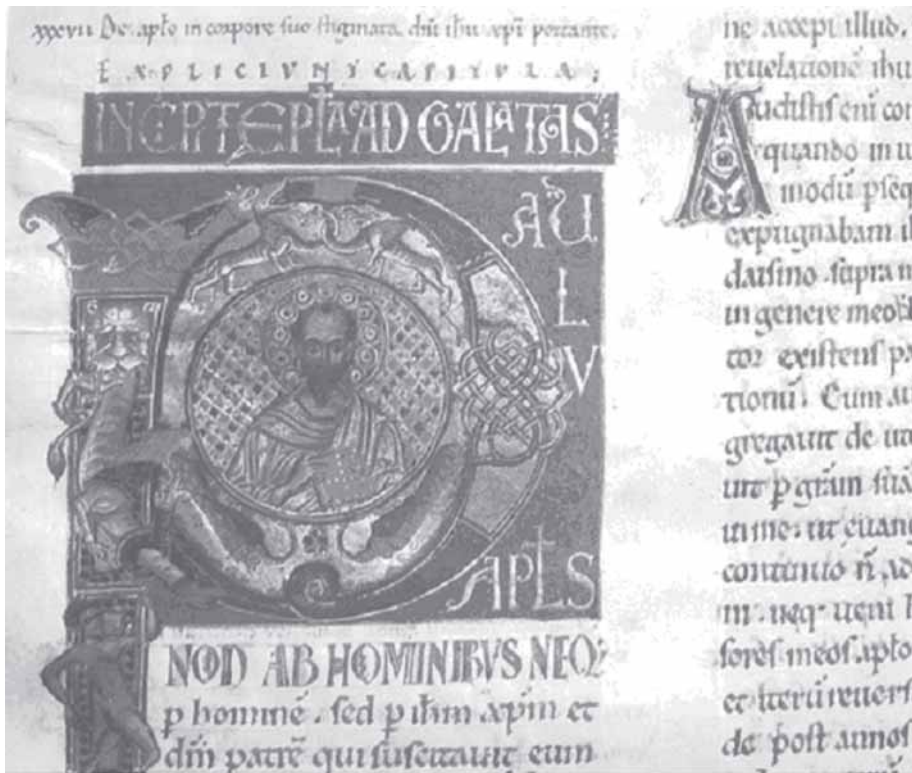 xxxvii De aplo in corpore suo stigmata dñi ihu xpi portante.
EXPLICIVNT CAPITVLA;
INCPT EPLA AD GALATAS
P AU
L
V
APLS
NOD AB HOMINIBVS NEQ;
p hominē. sed p ihm xpm et
dm̄ patrē qui suscitauit eum
ne accepi illud.
reuelationē ihu
Audistis eni con
quando in iu
modū pseq
expugnabam il
daismo supra m
in genere meo
tor existens pa
tionū. Cum au
gregauit de ut
uit p grām suā
in me. ut euang
continuo ñ ac
m neq ueni h
sores meos aplo
et iterū reuers
de post annos